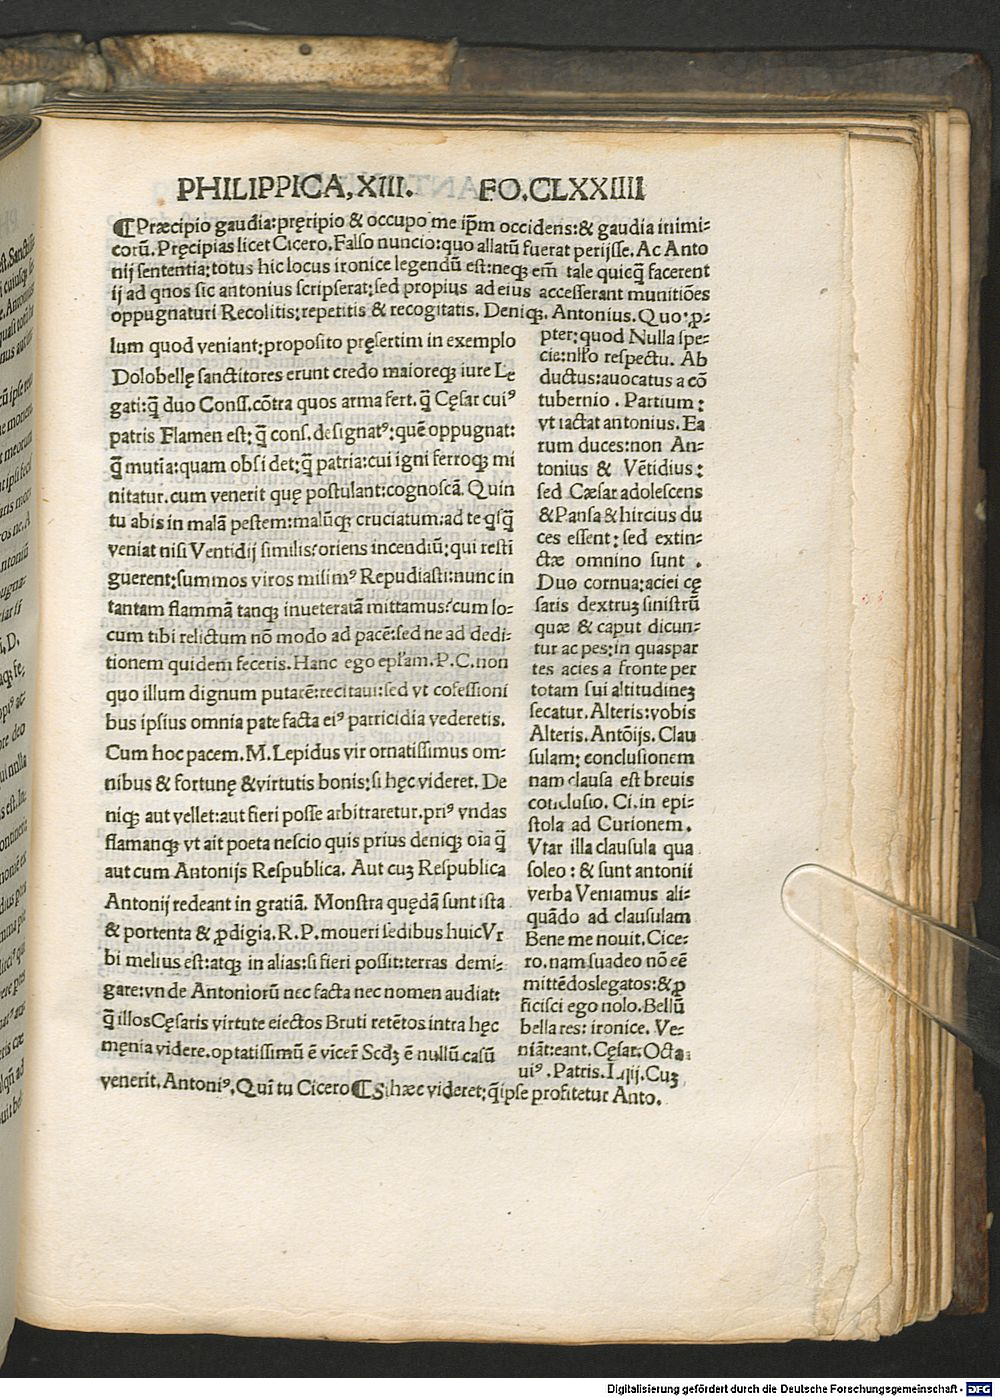 PHILIPPICA, XIII. FO.CLXXIIII
¶Præcipio gaudia:pręripio & occupo me ip̃m occidens:& gaudia inimi-
corũ. Pręcipias licet Cicero. Falso nuncio:quo allatũ fuerat perijsse. Ac Anto
nij sententia:totus hic locus ironice legendũ est:neqꝫ em̃ tale quicq̃ facerent
ij ad qnos sic antonius scripserat:sed propius ad eius accesserant munitiões
oppugnaturi Recolitis:repetitis & recogitatis. Deniqꝫ, Antonius. Quo:ꝓ-
lum quod veniant:proposito pręsertim in exemplo
Dolobellę sanctitores erunt credo maioreqꝫ iure Le
gati:q̃ duo Conss.cõtra quos arma fert. q̃ Cęsar cui⁹
patris Flamen est: q̃ cons. designat⁹: quẽ oppugnat:
q̃ mutia:quam obsidet:q̃ patria:cui igni ferroqꝫ mi
nitatur.cum venerit quę postulant:cognoscã. Quin
tu abis in malã pestem:malũqꝫ cruciatum:ad te q̃sq̃
veniat nisi Ventidij similis:oriens incendiũ:qui resti
guerent:summos viros misim⁹ Repudiasti:nunc in
tantam flammã tanqꝫ inueteratã mittamus:cum lo-
cum tibi relictum nõ modo ad pacẽ:sed ne ad dedi-
tionem quidem feceris. Hanc ego epl̃am.P.C.non
quo illum dignum putarẽ:recitaui:sed vt cõfessioni
bus ipsius omnia pate facta ei⁹ parricidia vederetis.
Cum hoc pacem.M.Lepidus vir ornatissimus om-
nibus & fortunę &virtutis bonis:si hęc videret. De
niqꝫ aut vellet:aut fieri posse arbitraretur.pri⁹ vndas
flamanqꝫ vt ait poeta nescio quis prius deniqꝫ oĩa q̃
aut cum Antonijs Respublica. Aut cuꝫ Respublica
Antonij redeant in gratiã. Monstra quędã sunt ista
& portenta & ꝓdigia.R.P.moueri sedibus huic Vr
bi melius est:atqꝫ in alias:si fieri possit:terras demi-
gare:vnde Antoniorũ nec facta nec nomen audiat:
q̃ illos Cęsaris virtute eiectos Bruti retẽtos intra hęc
męnia videre.optatissimũ ẽ vicer̃ Scdꝫ ẽ nullũ casũ
venerit. Antoni⁹. Qui tu Cicero ¶Si hæc videret:q̃ ipse profitetur Anto.
pter:quod Nulla spe-
cie:nl̃lo respectu. Ab
ductus:auocatus a cõ
tubernio . Partium:
vt iactat antonius. Ea
rum duces:non An-
tonius & Vẽtidius:
sed Cæsar adolescens
&Pansa & hircius du
ces essent: sed extin-
ctæ omnino sunt .
Duo cornua:aciei cę
saris dextruꝫ sinistrũ
quæ & caput dicun-
tur ac pes:in quaspar
tes acies a fronte per
totam sui altitudineꝫ
secatur. Alteris:vobis
Alteris. Antõijs. Clau
sulam: conclusionem
nam clausa est breuis
conclusio. Ci.in epi-
stola ad Curionem.
Vtar illa clausula qua
soleo : & sunt antonii
verba Veniamus ali-
quãdo ad clausulam
Bene me nouit. Cice-
ro. nam suadeo nõ eẽ
mittẽdoslegatos:&ꝓ
ficisci ego nolo. Bellũ
bella res: ironice. Ve-
niãt:eant. Cęsar. Octa
ui⁹ . Patris. I.qij. Cuꝫ
Digitalisierung gefördert durch die Deutsche Forschungsgemeinschaft - DFG